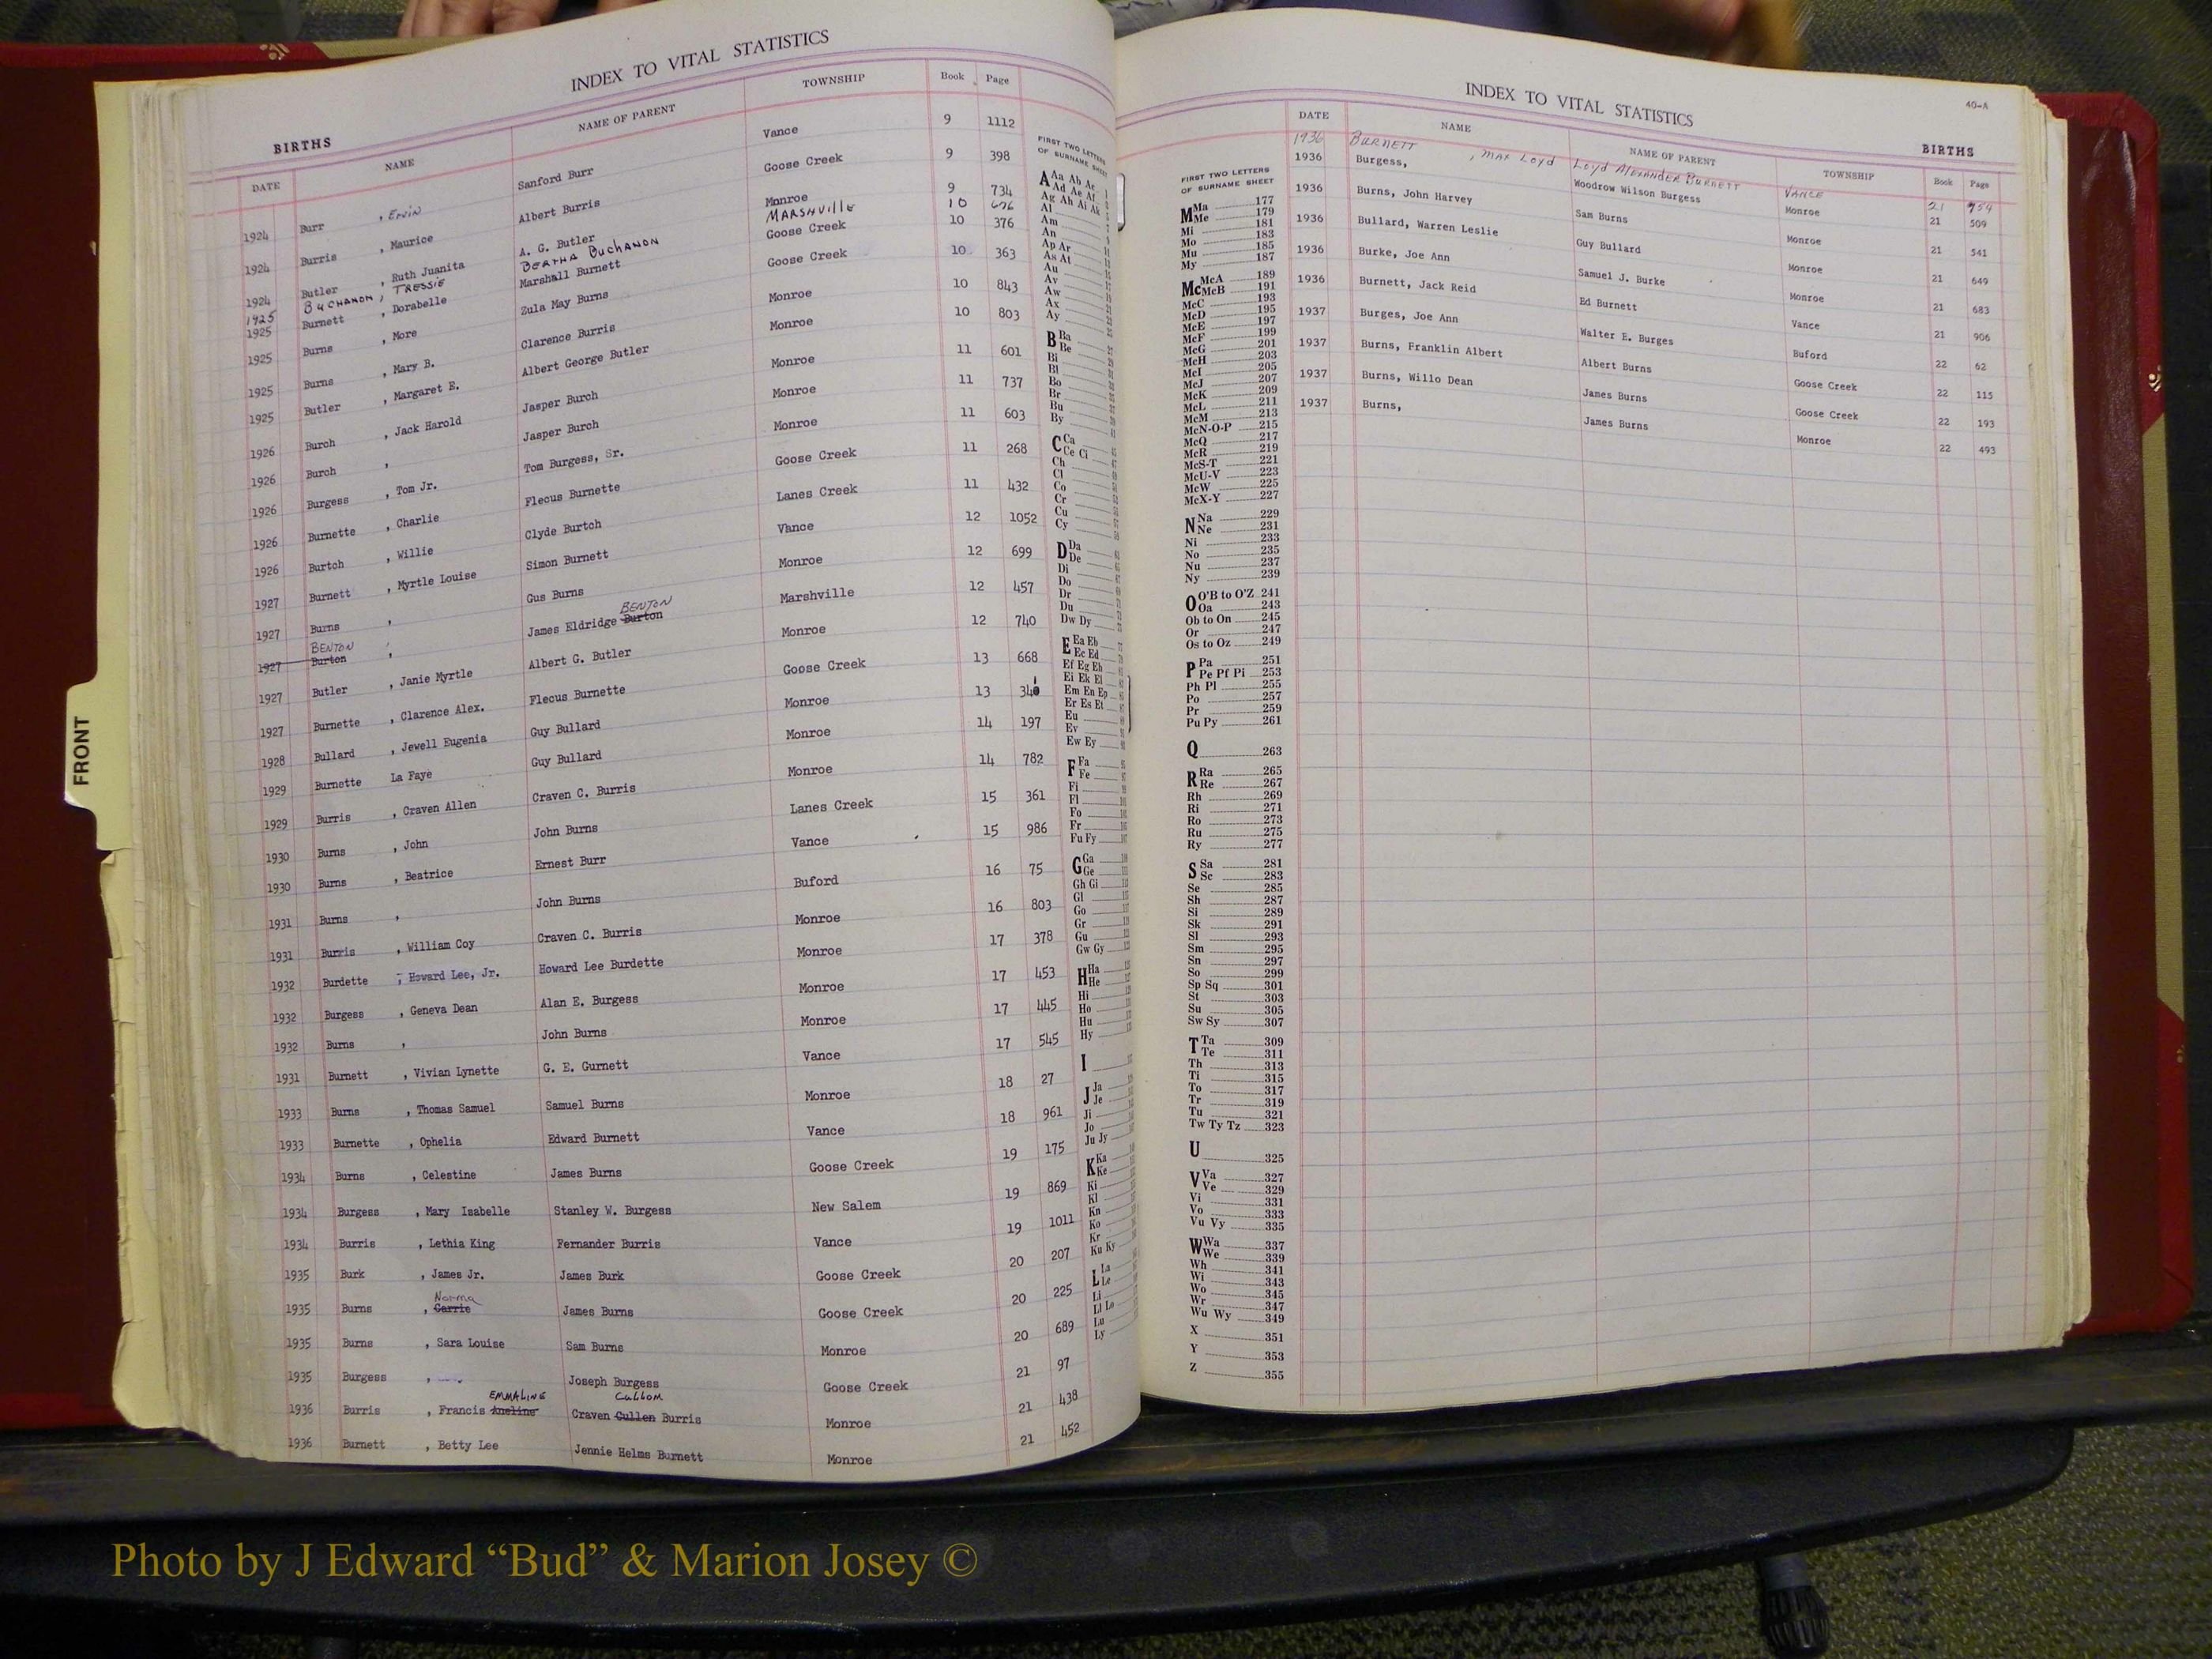 INDEX TO VITAL STATISTICS
BIRTHS
DATE NAME NAME OF PARENT TOWNSHIP Book Page
1924 Burr , Ervin Sanford Burr Vance 9 1112
1924 Burris , Maurice Albert Burris Goose Creek 9 398
1924 Butler , Ruth Juanita A. G. Butler Monroe 9 734
1925 BUCHANON , TRESSIE BERTHA BUCHANON MARSHVILLE 10
1925 Burnett , Dorabelle Marshall Burnett Goose Creek 10 376
1925 Burns , More Zula May Burns Goose Creek 10 363
1925 Burns , Mary B. Clarence Burris Monroe 10 843
1925 Butler , Margaret E. Albert George Butler Monroe 10 803
1926 Burch , Jack Harold Jasper Burch Monroe 11 601
1926 Burch , Jasper Burch Monroe 11 737
1926 Burgess , Tom Jr. Tom Burgess, Sr. Monroe 11 603
1926 Burnette , Charlie Flecus Burnette Goose Creek 11 268
1926 Burtch , Willie Clyde Burtch Lanes Creek 11 432
1927 Burnett , Myrtle Louise Simon Burnett Vance 12 1052
1927 Burns , Gus Burns Monroe 12 699
BENTON BENTON
1927 Burton , James Eldridge Burton Marshville 12 457
1927 Butler , Janie Myrtle Albert G. Butler Monroe 12 740
1927 Burnette , Clarence Alex. Flecus Burnette Goose Creek 13 668
1928 Bullard , Jewell Eugenia Guy Bullard Monroe 13
1929 Burnette La Faye Guy Bullard Monroe 14 197
1929 Burris , Craven Allen Craven C. Burris Monroe 14 782
1930 Burns , John John Burns Lanes Creek 15 361
1930 Burns , Beatrice Ernest Burr Vance 15 986
1931 Burns , John Burns Buford 16 75
1931 Burris , William Coy Craven C. Burris Monroe 16 803
1932 Burdette , Howard Lee, Jr. Howard Lee Burdette Monroe 17 378
1932 Burgess , Geneva Dean Alan E. Burgess Monroe 17 453
1932 Burns , John Burns Monroe 17 445
1931 Burnett , Vivian Lynette G. E. Gurnett Vance 17 545
1933 Burns , Thomas Samuel Samuel Burns Monroe 18 27
1933 Burnette , Ophelia Edward Burnett Vance 18 961
1934 Burns , Celestine James Burns Goose Creek 19 175
1934 Burgess , Mary Isabelle Stanley W. Burgess New Salem 19 869
1934 Burris , Lethia King Fernander Burris Vance 19 1011
1935 Burk , James Jr. James Burk Goose Creek 20 207
Norma
1935 Burns , Carrie James Burns Goose Creek 20 225
1935 Burns , Sara Louise Sam Burns Monroe 20 689
1935 Burgess , Joseph Burgess Goose Creek 21 97
EMMALINE CULLOM
1936 Burris , Francis Aneline Craven Cullen Burris Monroe 21 438
1936 Burnett , Betty Lee Jennie Helms Burnett Monroe 21 452
FIRST TWO LETTERS
OF SURNAME SHEET
A Aa Ab Ac
Ad Ae Af
Ag Ah Ai Ak
Al
Am
An
Ap Ar
As At
Au
Av
Aw
Ax
Ay
B Ba
Be
Bi
Bl
Bo
Br
Bu
By
C Ca
Ce Ci
Ch
Cl
Co
Cr
Cu
Cy
D Da
De
Di
Do
Dr
Du
Dw Dy
E Ea Eb
Ec Ed
Ef Eg Eh
Ei Ek El
Em En Ep
Er Es Et
Eu
Ev
Ew Ey
F Fa
Fe
Fi
Fl
Fo
Fr
Fu Fy
G Ga
Ge
Gh Gi
Gl
Go
Gr
Gu
Gw Gy
H Ha
He
Hi
Ho
Hu
Hy
I
J Ja
Je
Ji
Jo
Ju Jy
K Ka
Ke
Ki
Kl
Kn
Ko
Kr
Ku Ky
L La
Le
Li
Ll Lo
Lu
Ly
FRONT
INDEX TO VITAL STATISTICS
40-A
BIRTHS
DATE NAME NAME OF PARENT TOWNSHIP Book Page
1936 BURNETT , Max Loyd Loyd Alexander Burnett VANCE 21 954
1936 Burgess, Woodrow Wilson Burgess Monroe 21 509
1936 Burns, John Harvey Sam Burns Monroe 21 541
1936 Bullard, Warren Leslie Guy Bullard Monroe 21 649
1936 Burke, Joe Ann Samuel J. Burke Monroe 21 683
1936 Burnett, Jack Reid Ed Burnett Vance 21 906
1937 Burges, Joe Ann Walter E. Burges Buford 22 62
1937 Burns, Franklin Albert Albert Burns Goose Creek 22 115
1937 Burns, Willo Dean James Burns Goose Creek 22 193
1937 Burns, James Burns Monroe 22 493
FIRST TWO LETTERS
OF SURNAME SHEET
M Ma 177
Me 179
Mi 181
Mo 183
Mu 185
My 187
Mc McA 189
McB 191
McC 193
McD 195
McE 197
McF 199
McG 201
McH 203
McI 205
McJ 207
McK 209
McL 211
McM 213
McN-O-P 215
McQ 217
McR 219
McS-T 221
McU-V 223
McW 225
McX-Y 227
N Na 229
Ne 231
Ni 233
No 235
Nu 237
Ny 239
O O'B to O'Z 241
Oa 243
Ob to On 245
Or 247
Os to Oz 249
P Pa 251
Pe Pf Pi 253
Ph Pl 255
Po 257
Pr 259
Pu Py 261
Q 263
R Ra 265
Re 267
Rh 269
Ri 271
Ro 273
Ru 275
Ry 277
S Sa 281
Sc 283
Se 285
Sh 287
Si 289
Sk 291
Sl 293
Sm 295
Sn 297
So 299
Sp Sq 301
St 303
Su 305
Sw Sy 307
T Ta 309
Te 311
Th 313
Ti 315
To 317
Tr 319
Tu 321
Tw Ty Tz 323
U 325
V Va 327
Ve 329
Vi 331
Vo 333
Vu Vy 335
W Wa 337
We 339
Wh 341
Wi 343
Wo 345
Wr 347
Wu Wy 349
X 351
Y 353
Z 355
Photo by J Edward “Bud” & Marion Josey ©